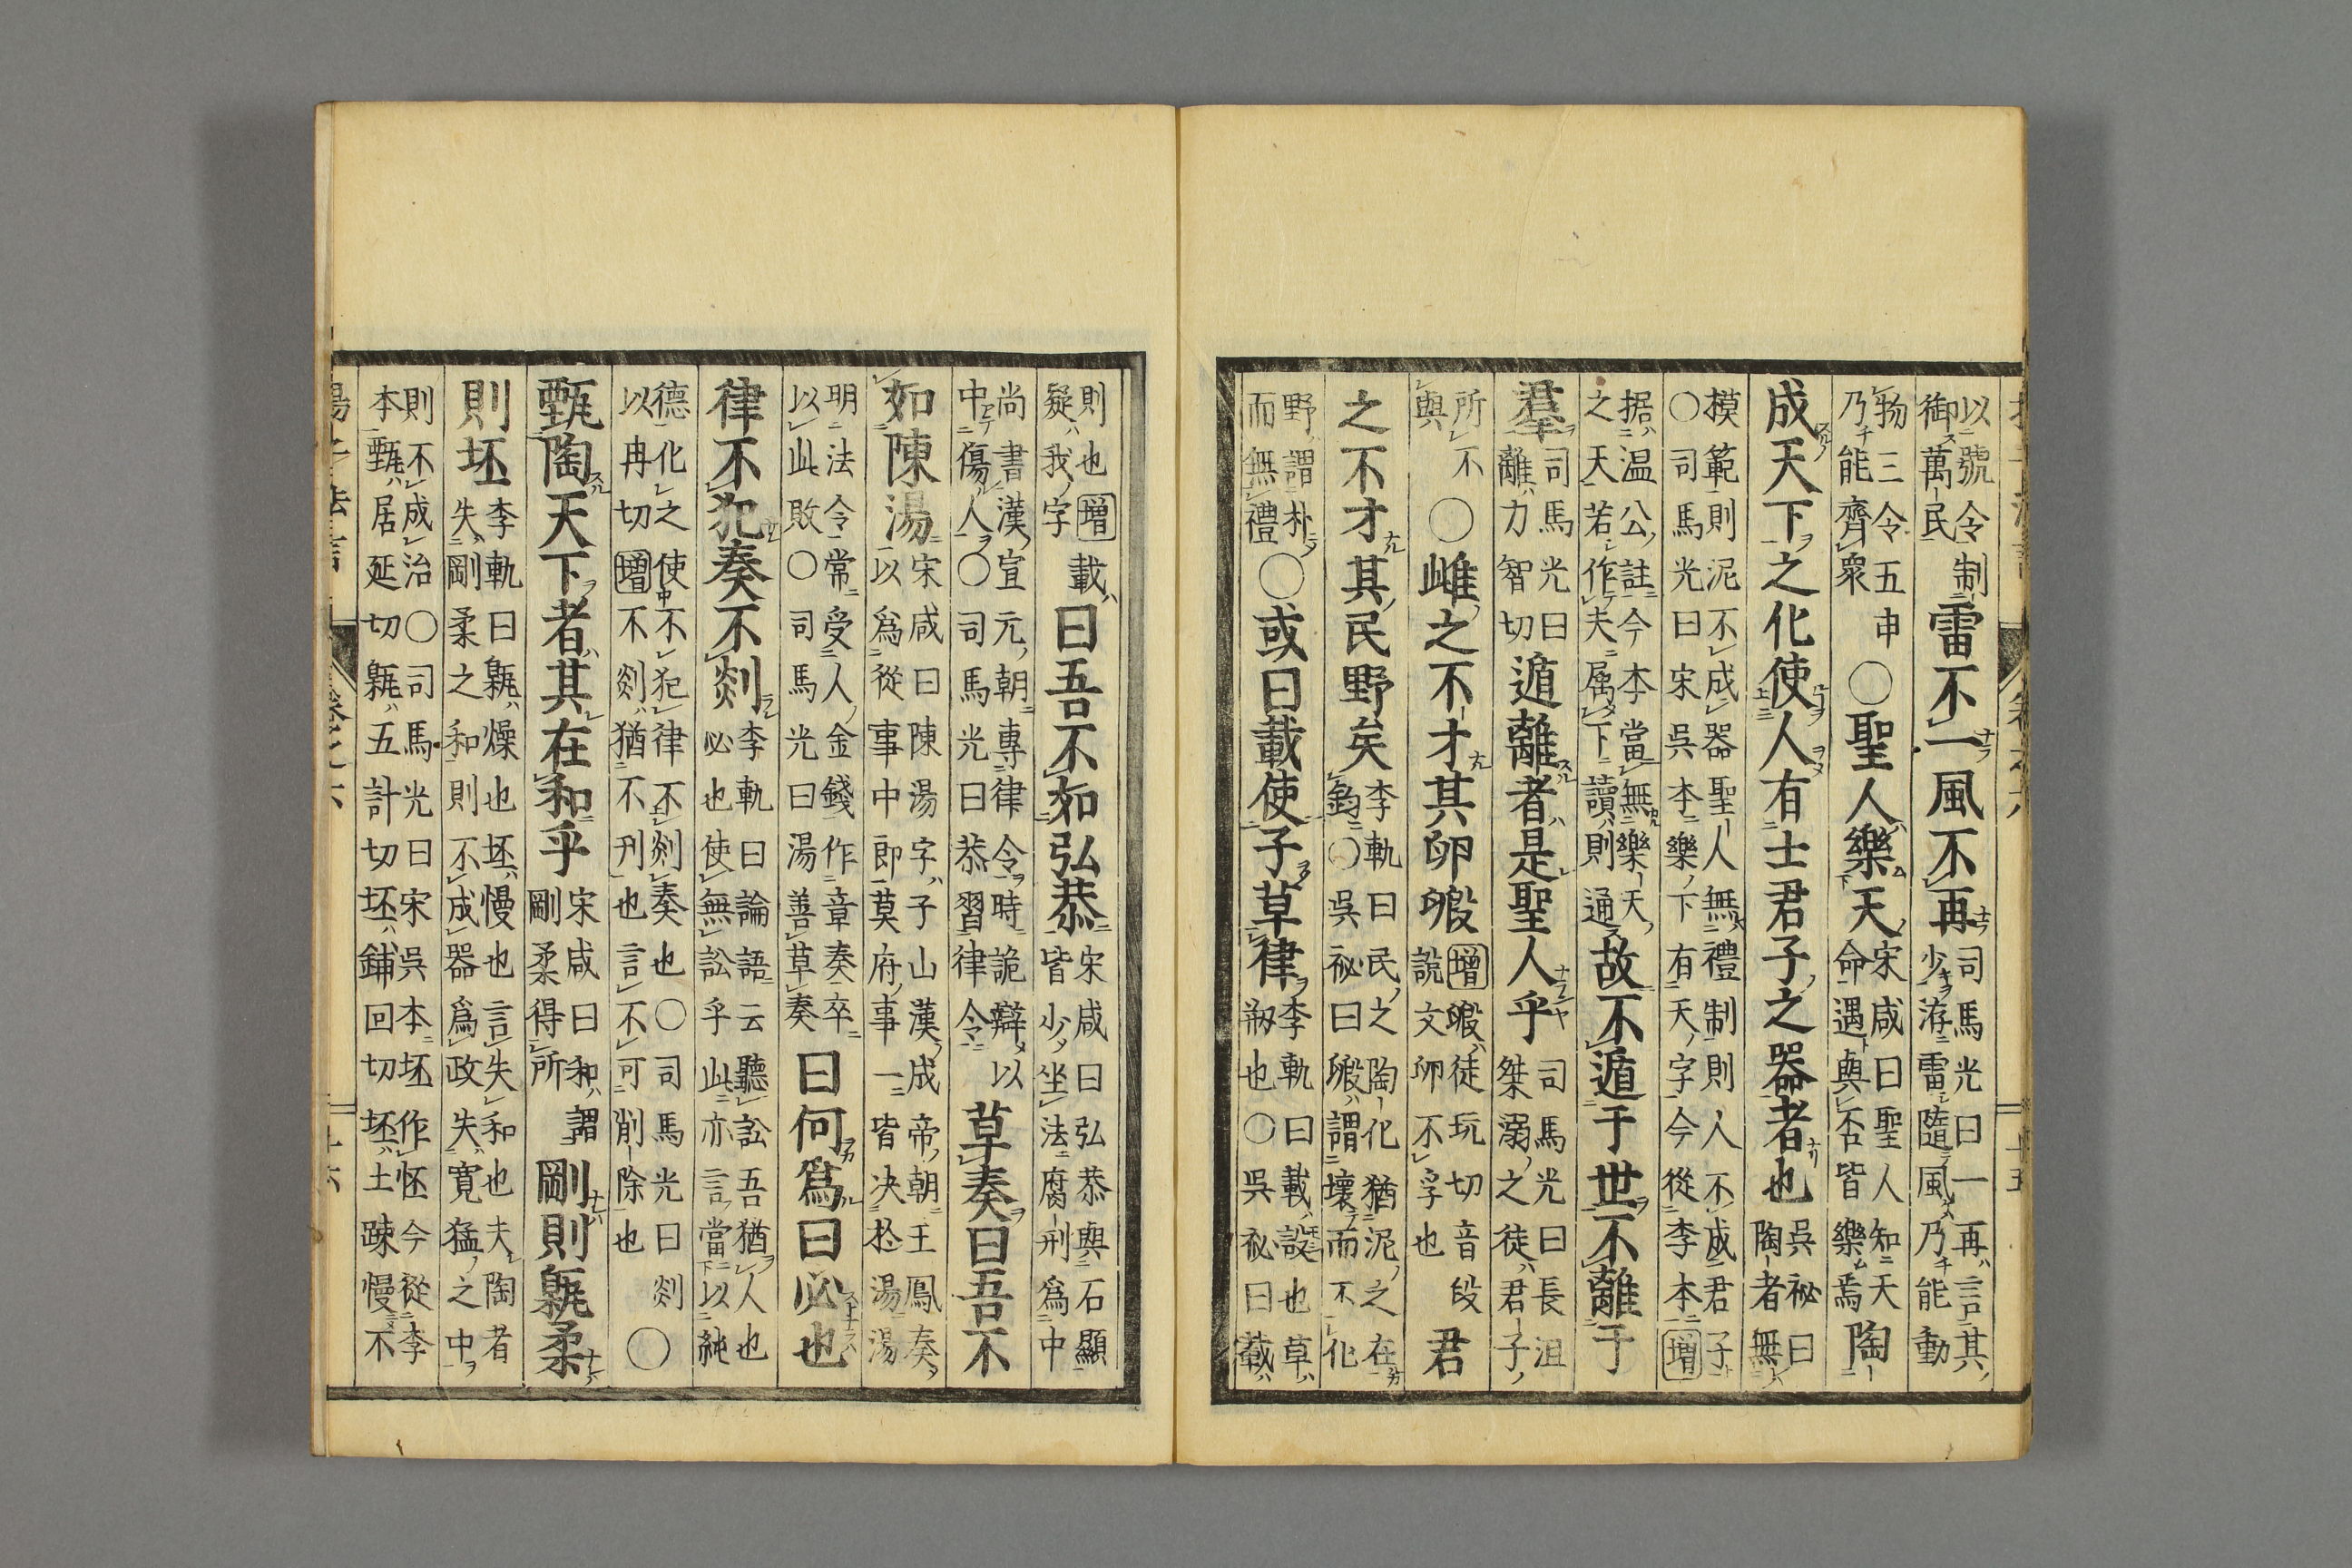 以號令制
御萬民
雷不一風不再
司馬光曰一再言其
少洊雷隨風乃能動
物三令五申
乃能齊衆
○聖人樂天
宋咸曰聖人知天
命遇與否皆樂焉
陶
成天下之化使人有士君子之器者也
吳祕曰
陶者無
摸範則泥不成器聖人無禮制則人不成君子
○司馬光曰宋吳本樂下有天字今從李本增
据温公註今本當無樂天
之天若作夫属下讀則通
故不遁于世不離于
羣
司馬光曰
離力智切
遁離者是聖人乎
司馬光曰長沮
桀溺之徒君子
所不
與
○雌之不才其卵毈
增毈徒玩切音段
說文卵不孚也
君
之不才其民野矣
李軌曰民之陶化猶泥之在
鈞○吳祕曰毈謂壞而不化
野謂朴
而無禮
○或曰載使子草律
李軌曰載設也草
剏也○吳祕曰載
則也增載
疑我字
曰吾不如弘恭
宋咸曰弘恭與石顯
皆少坐法腐刑爲中
尚書漢宣元朝專律令時詭辯以
中傷人○司馬光曰恭習律令
草奏曰吾不
如陳湯
宋咸曰陳湯字子山漢成帝朝王鳳奏
以爲從事中郎莫府事一皆决於湯湯
明法令常受人金錢作章奏卒
以此敗○司馬光曰湯善草奏
曰何爲曰必也
律不犯奏不剡
李軌曰論語云聽訟吾猶人也
必也使無訟乎此亦言當以純
德化之使不犯律不剡奏也○司馬光曰剡
以冉切增不剡猶不刋也言不可削除也
○
甄陶天下者其在和乎
宋咸曰和謂
剛柔得所
剛則甈柔
則坯
李軌曰甈燥也坯慢也言失和也夫陶者
失剛柔之和則不成器爲政失寬猛之中
則不成治○司馬光曰宋吳本坯作怌今從李
本甄居延切甈五計切坯鋪回切坯土踈慢不